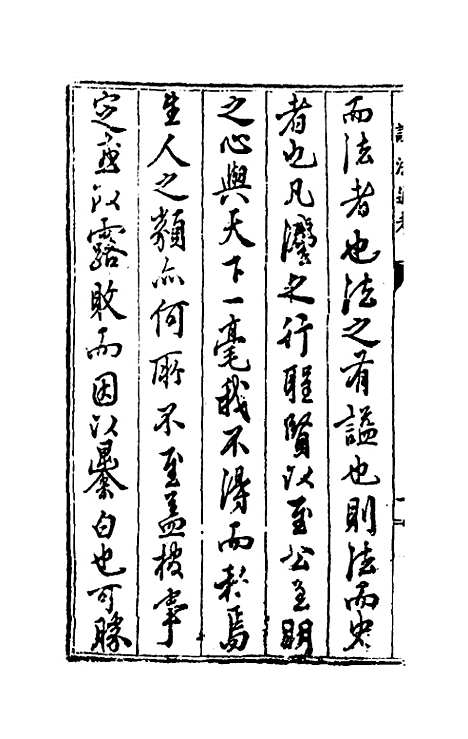 而法者也法之有諡也則法而史
者也凡灋之行聖賢以至公至明
之心與天下一毫我不得而私焉
生人之類亦何所不至蓋校事
定而以露敗而因以暴白也可勝
諡法通考